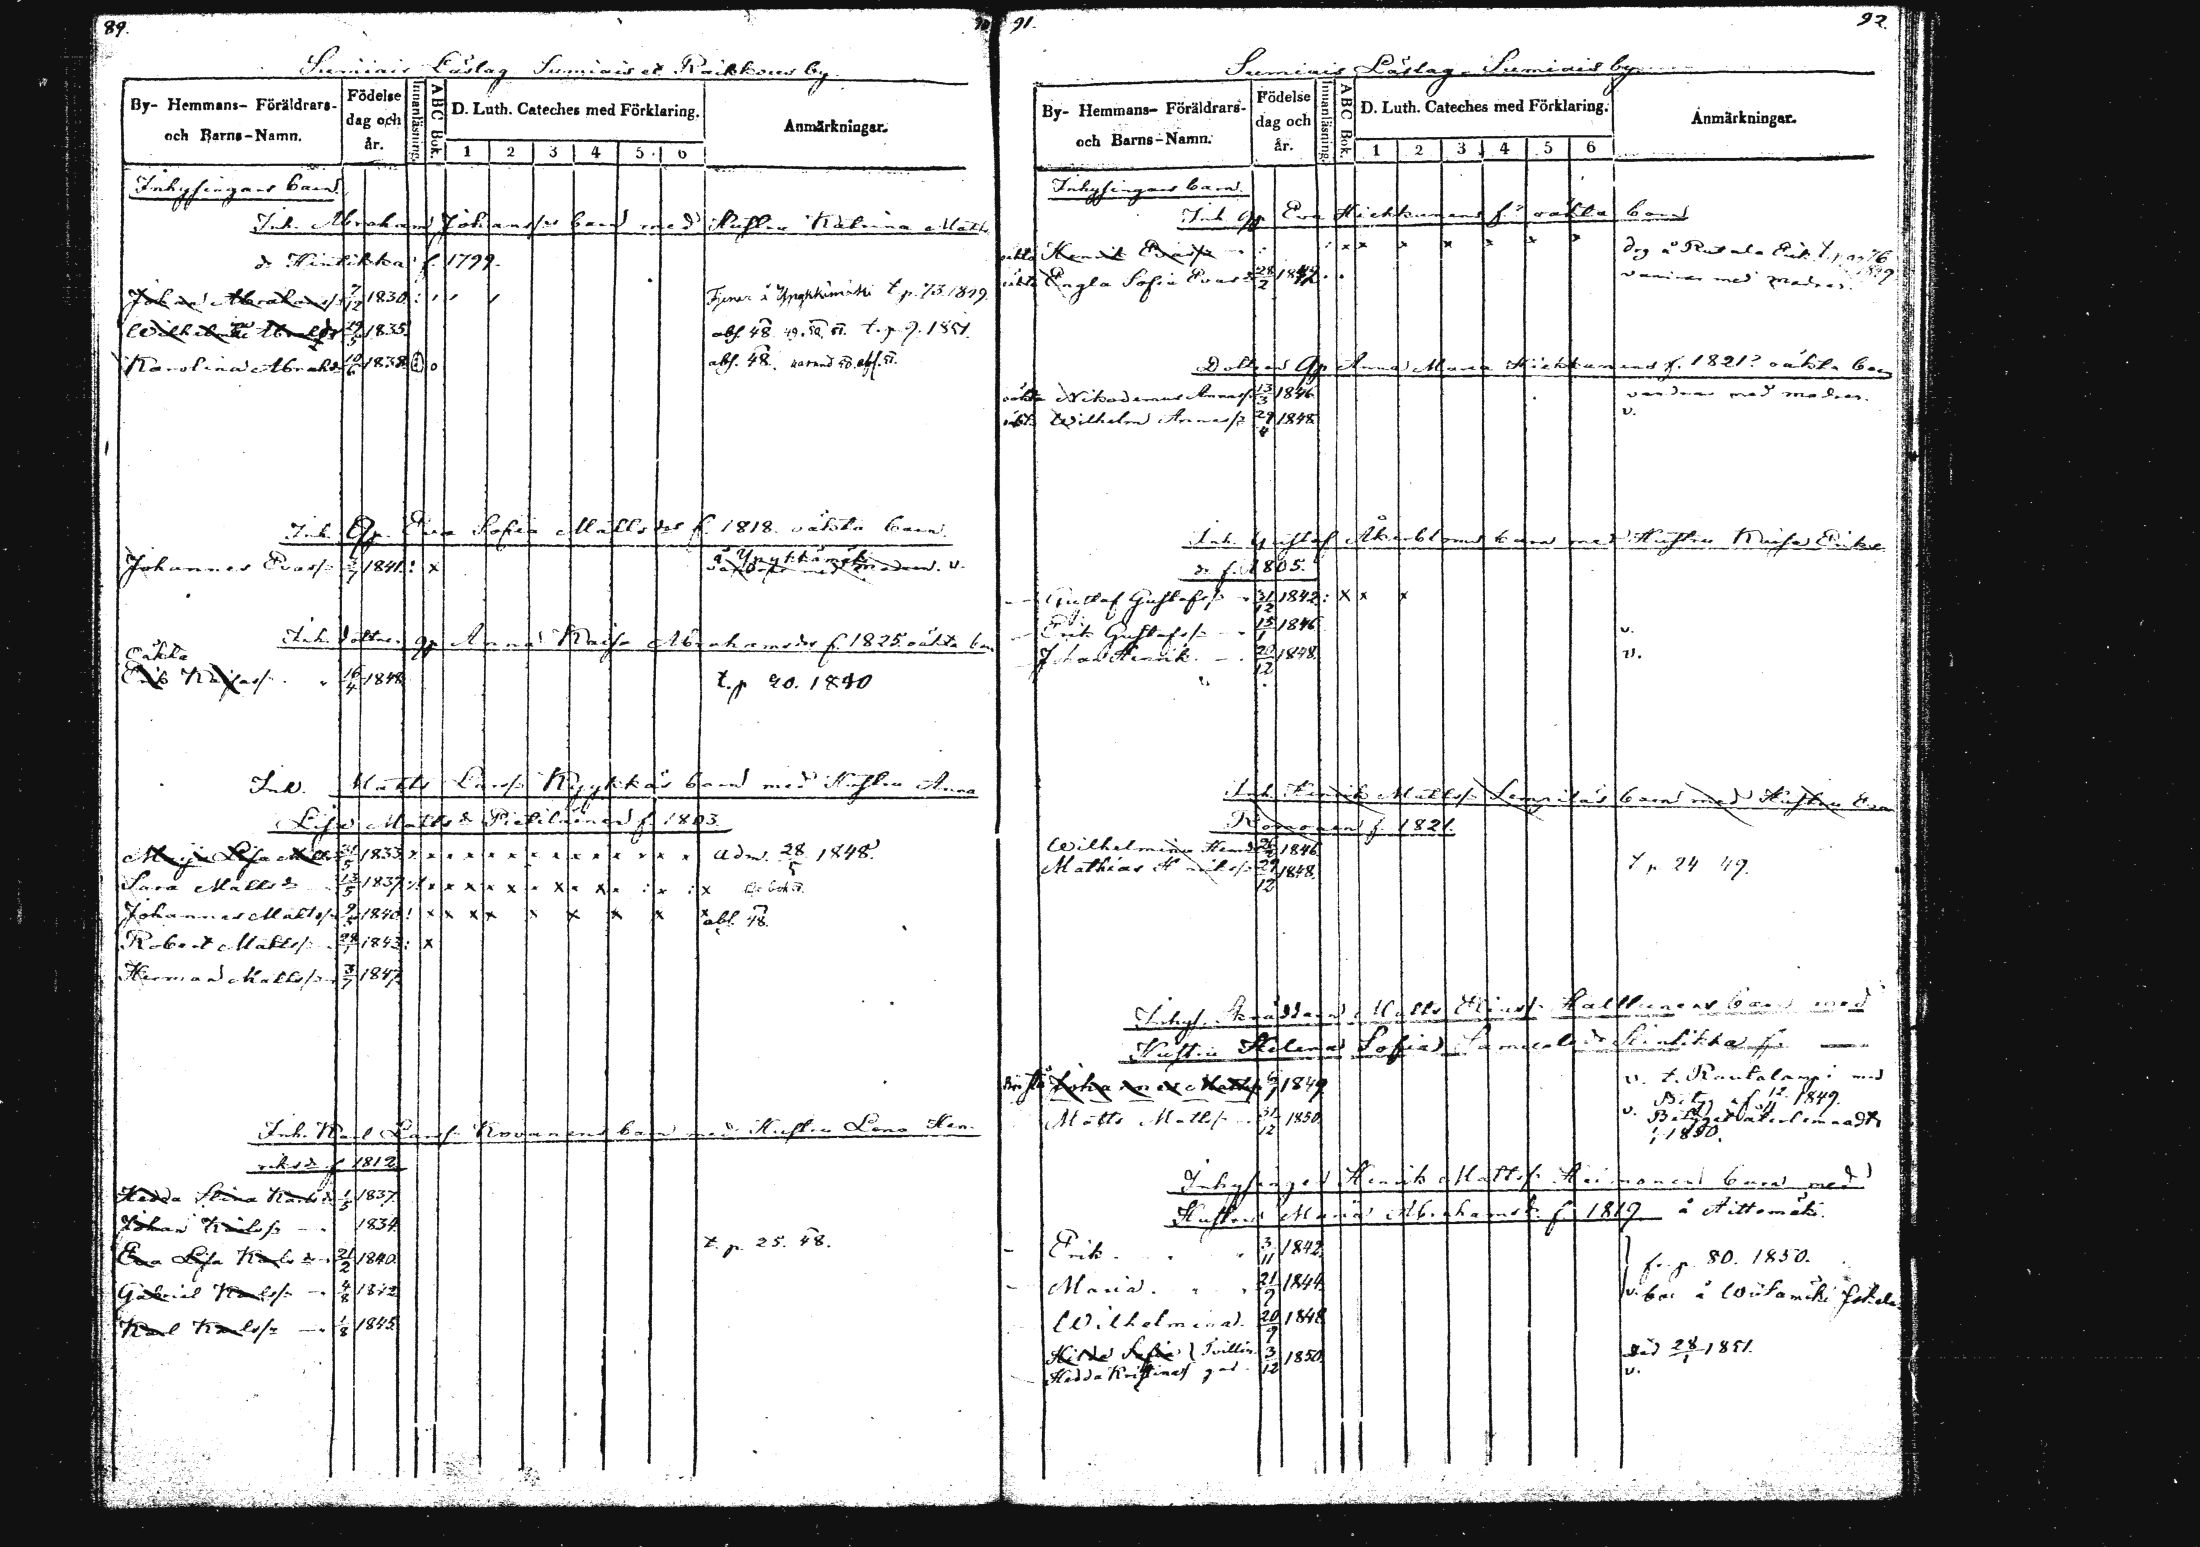 89.
90
Sumiais Läslag Sumiais et Raikkous by
By- Hemmans- Föräldrars- och Barns-Namn.
Födelse dag och år.
Innanläsning.
ABC Bok.
D. Luth. Cateches med Förklaring.
1 2 3 4 5 6
Anmärkningar.
Inhysingars barn
Inh. Abraham Johanss: barn med Hustru Katrina Matts
dr Hintikka f. 1799.
Johan Abrahamss: 7/12 1830 Tjenar å Ypykkämäki t. p. 73. 1849
Wilhelm Abrahss 1835 abs. 48. 49. 50. 51. t. p. 9. 1851.
Karolina Abrahdr 10/6 1838 abs. 48.
Inh. Qp. Eva Sofia Matts dr f. 1818. oäkta barn.
Johannes Evass: 1841 : x å Ypykkämäki vandrar med modren. v.
Inh. dottren qp Anna Kaisa Abrahamsdr f. 1825 oäkta barn
oäkta
Erik Kaisass: 16/4 1848 t. p 20. 1840
Inh. Matts Larss: Kyykkäs barn med Hustru Anna
Lisa Matts dr Pietiläinen f. 1803
Maja Lisa Mattsdr 31/5 1833 adm. 28/5 1848.
Sara Mattsdr 13/5 1837
Johannes Mattss: 1840 abs. 48.
Robert Mattss: 1843 : x
Herman Mattss: 1847
Inh. Karl Larss: Kovanens barn med Hustru Lena Hen-
riksdr f 1812
Hedda Stina Karlsdr 1/5 1837
Johan Karlss: 1834
Eva Lisa Karlsdr 21/2 1840 t. p. 25. 48.
Gabriel Karlss: 4/8 1842
Karl Karlss: 1/8 1845
91.
92.
Sumiais Läslag Sumiais by
By- Hemmans- Föräldrars- och Barns-Namn.
Födelse dag och år.
Innanläsning.
ABC Bok.
D. Luth. Cateches med Förklaring.
1 2 3 4 5 6
Anmärkningar.
Inhysingars barn.
Inh. qp Eva Hiekkanens f? oäkta barn
oäkta Henrik Evass: x x x x x x x 1849
oäkta Engla Sofia Evasdr 28/2 vandrar med modren.
Dottren Qp Anna Maria Hiekkanens f. 1821? oäkta barn
oäkta Nikodemus Annass: 13/3 1846 vandrar med modren.
oäkta Wilhelm Annass: 29/4 1848 v.
Inh. Gustaf Åkerbloms barn med Hustru Kaisa Eriks
dr f. 1805.
Gustaf Gustafss: 31/12 1842 : x x x
Erik Gustafss: 15/1 1846 v.
Johan Henrik 20/12 1848 v.
Inh. Henrik Mattss: Lempiläs barn med Hustru Eva
Romonen f. 1821.
Wilhelmina Henrdr 1846
Mathias Henrikss: 29/12 1848. t p 24 49.
Inhys. Skräddaren Matts Eliass: Halttunens barn med
Hustru Helena Sofia Samuels dr Hintikka f:
Johannes Mattss: 6/1 1849 v. t. Rautalampi med
Betyg af 12/11 1849.
Matts Mattss: 31/12 1850 v. Betyget återlemnadt
1850.
Inhysingen Henrik Mattss: Heimonens barn med
Hustru Maria Abrahamsdr f. 1819 å Aittomäki.
Erik 3/11 1842 f. p. 80. 1850.
Maria 21/9 1844 v. bor å
Wilhelmina 20/9 1848
Hilda Sofia } Tvillin- 3/12 1850 död 28/1 1851.
Hedda Kristina } gar v.